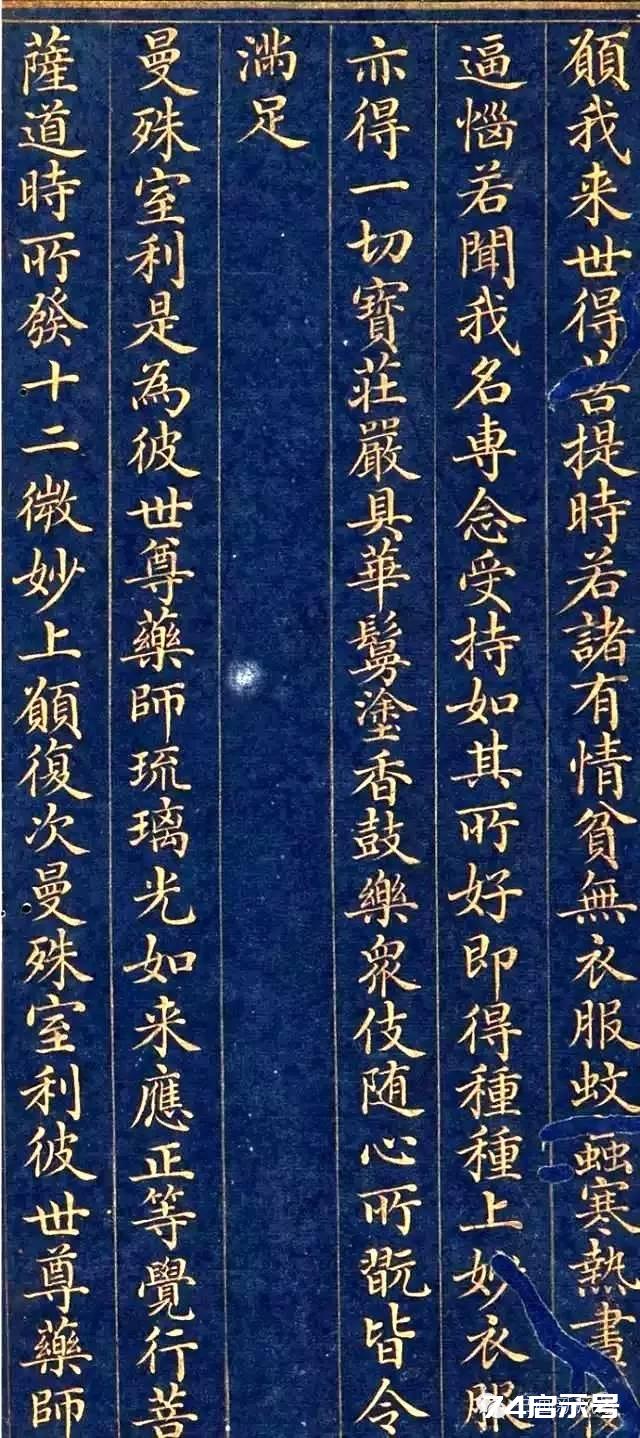 願我来世得菩提時若諸有情貧無衣服蚊蝱寒熱晝
逼惱若聞我名専念受持如其所好即得種種上妙衣服
亦得一切寶莊嚴具華鬘塗香鼓樂衆伎随心所翫皆令
滿足
曼殊室利是為彼世尊藥師琉璃光如来應正等覺行菩
薩道時所發十二微妙上願復次曼殊室利彼世尊藥師
74启示号